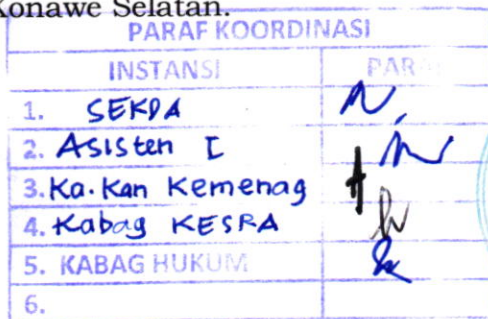 Konawe Selatan.
PARAF KOORDINASI
INSTANSI PARAF
1. SEKDA
2. Asisten I
3. Ka. Kan Kemenag
4. Kabag KESRA
5. KABAG HUKUM
6.